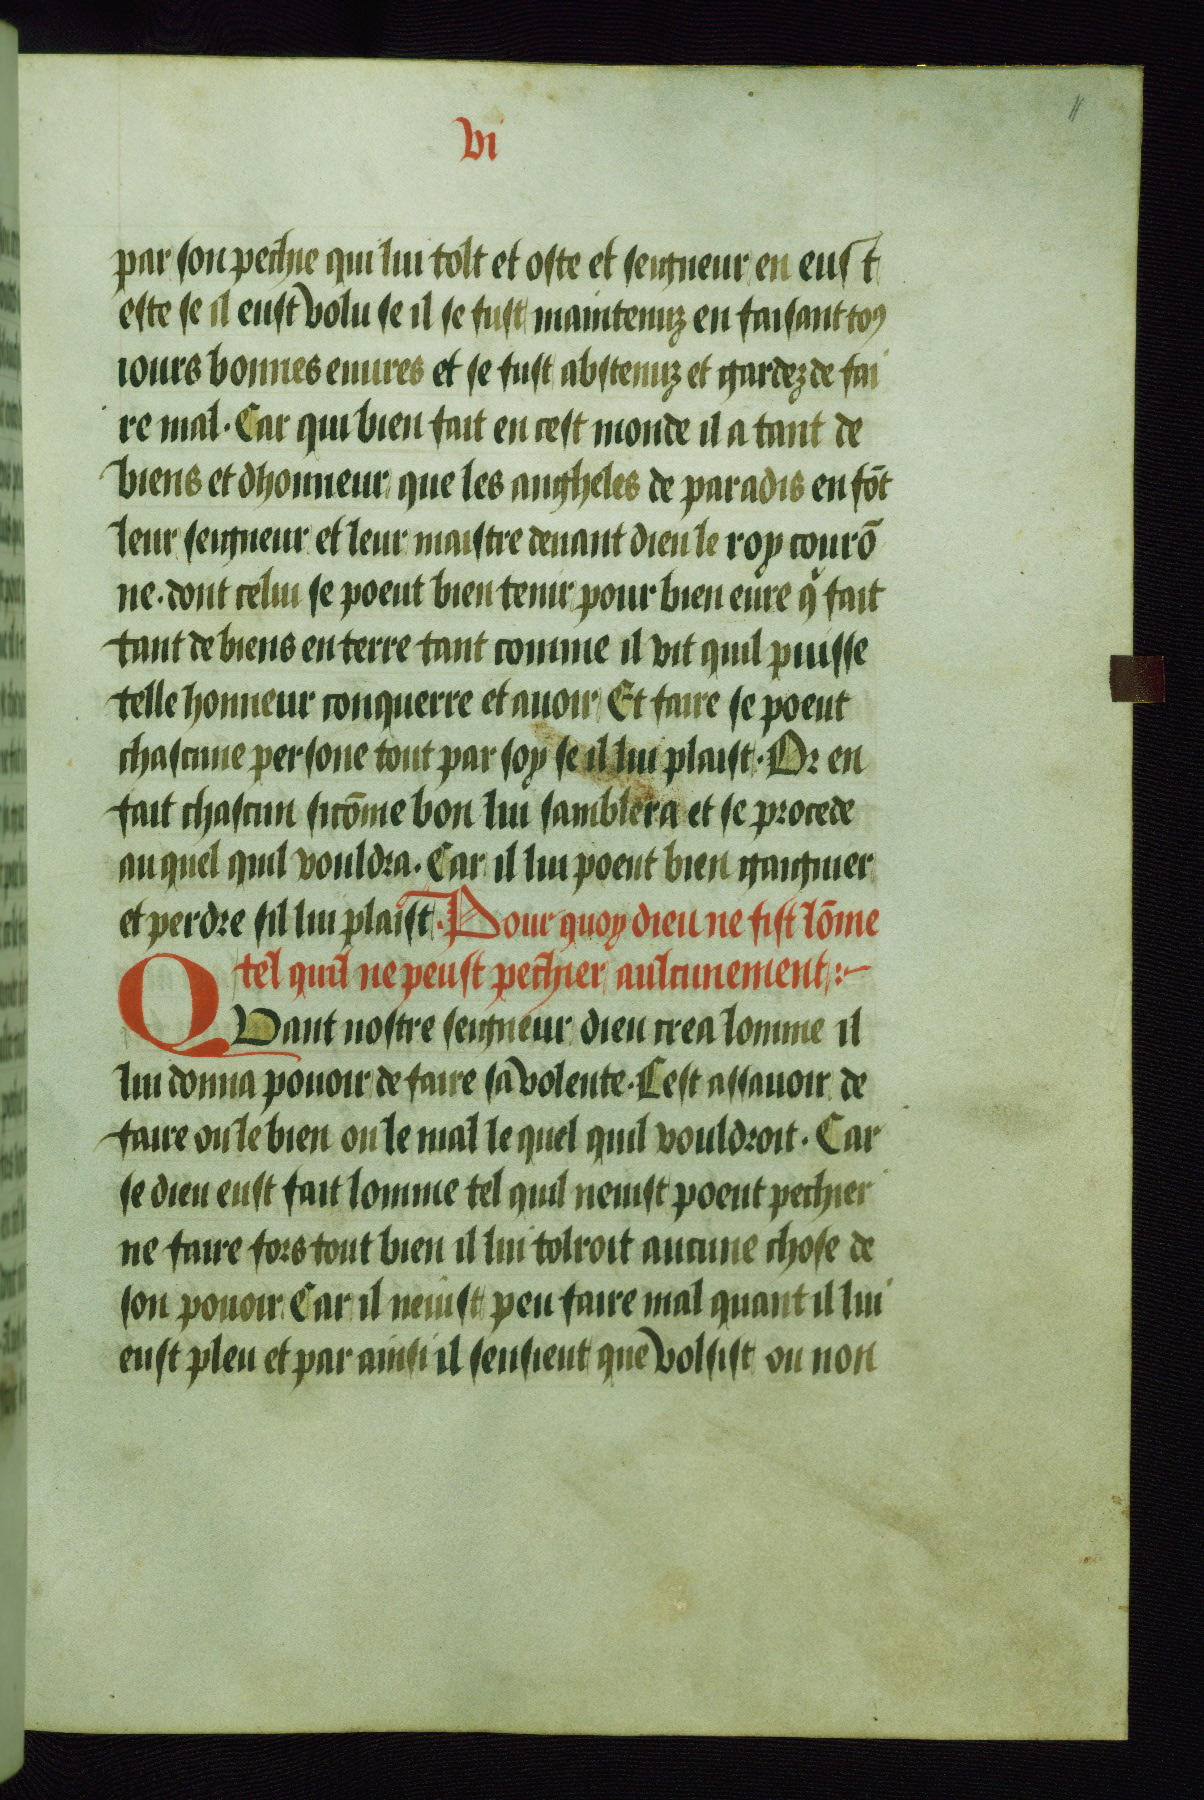 vi
11
par son pechie qui lui tolt et oste et seigneur en eust
este se il eust volu se il se fust maintenuz en faisant toꝰ
iours bonnes euures et se fust abstenuz et gardez de fai
re mal. Car qui bien fait en cest monde il a tant de
biens et dhonneur que les angheles de paradis en fōt
leur seigneur et leur maistre deuant dieu le roy courō
ne. dont celui se poeut bien tenir pour bien eure qͥ fait
tant de biens en terre tant comme il vit quil puisse
telle honneur conquerre et auoir Et faire se poeut
chascune persone tout par soy se il lui plaist. Or en
fait chascun sicōme bon lui samblera et se procede
au quel quil vouldra. Car il lui poeut bien gaignier
et perdre sil lui plaist. Pour quoy dieu ne fist lōme
tel quil ne peust pechier aulcunement :~
QUant nostre seigneur dieu crea lomme il
lui donna pouoir de faire sa volente. Cest assauoir de
faire ou le bien ou le mal le quel quil vouldroit. Car
se dieu eust fait lomme tel quil neuist poeut pechier
ne faire fors tout bien il lui tolroit aucune chose de
son pouoir Car il neuist peu faire mal quant il lui
eust pleu et par ainsi il sensieut que volsist ou non